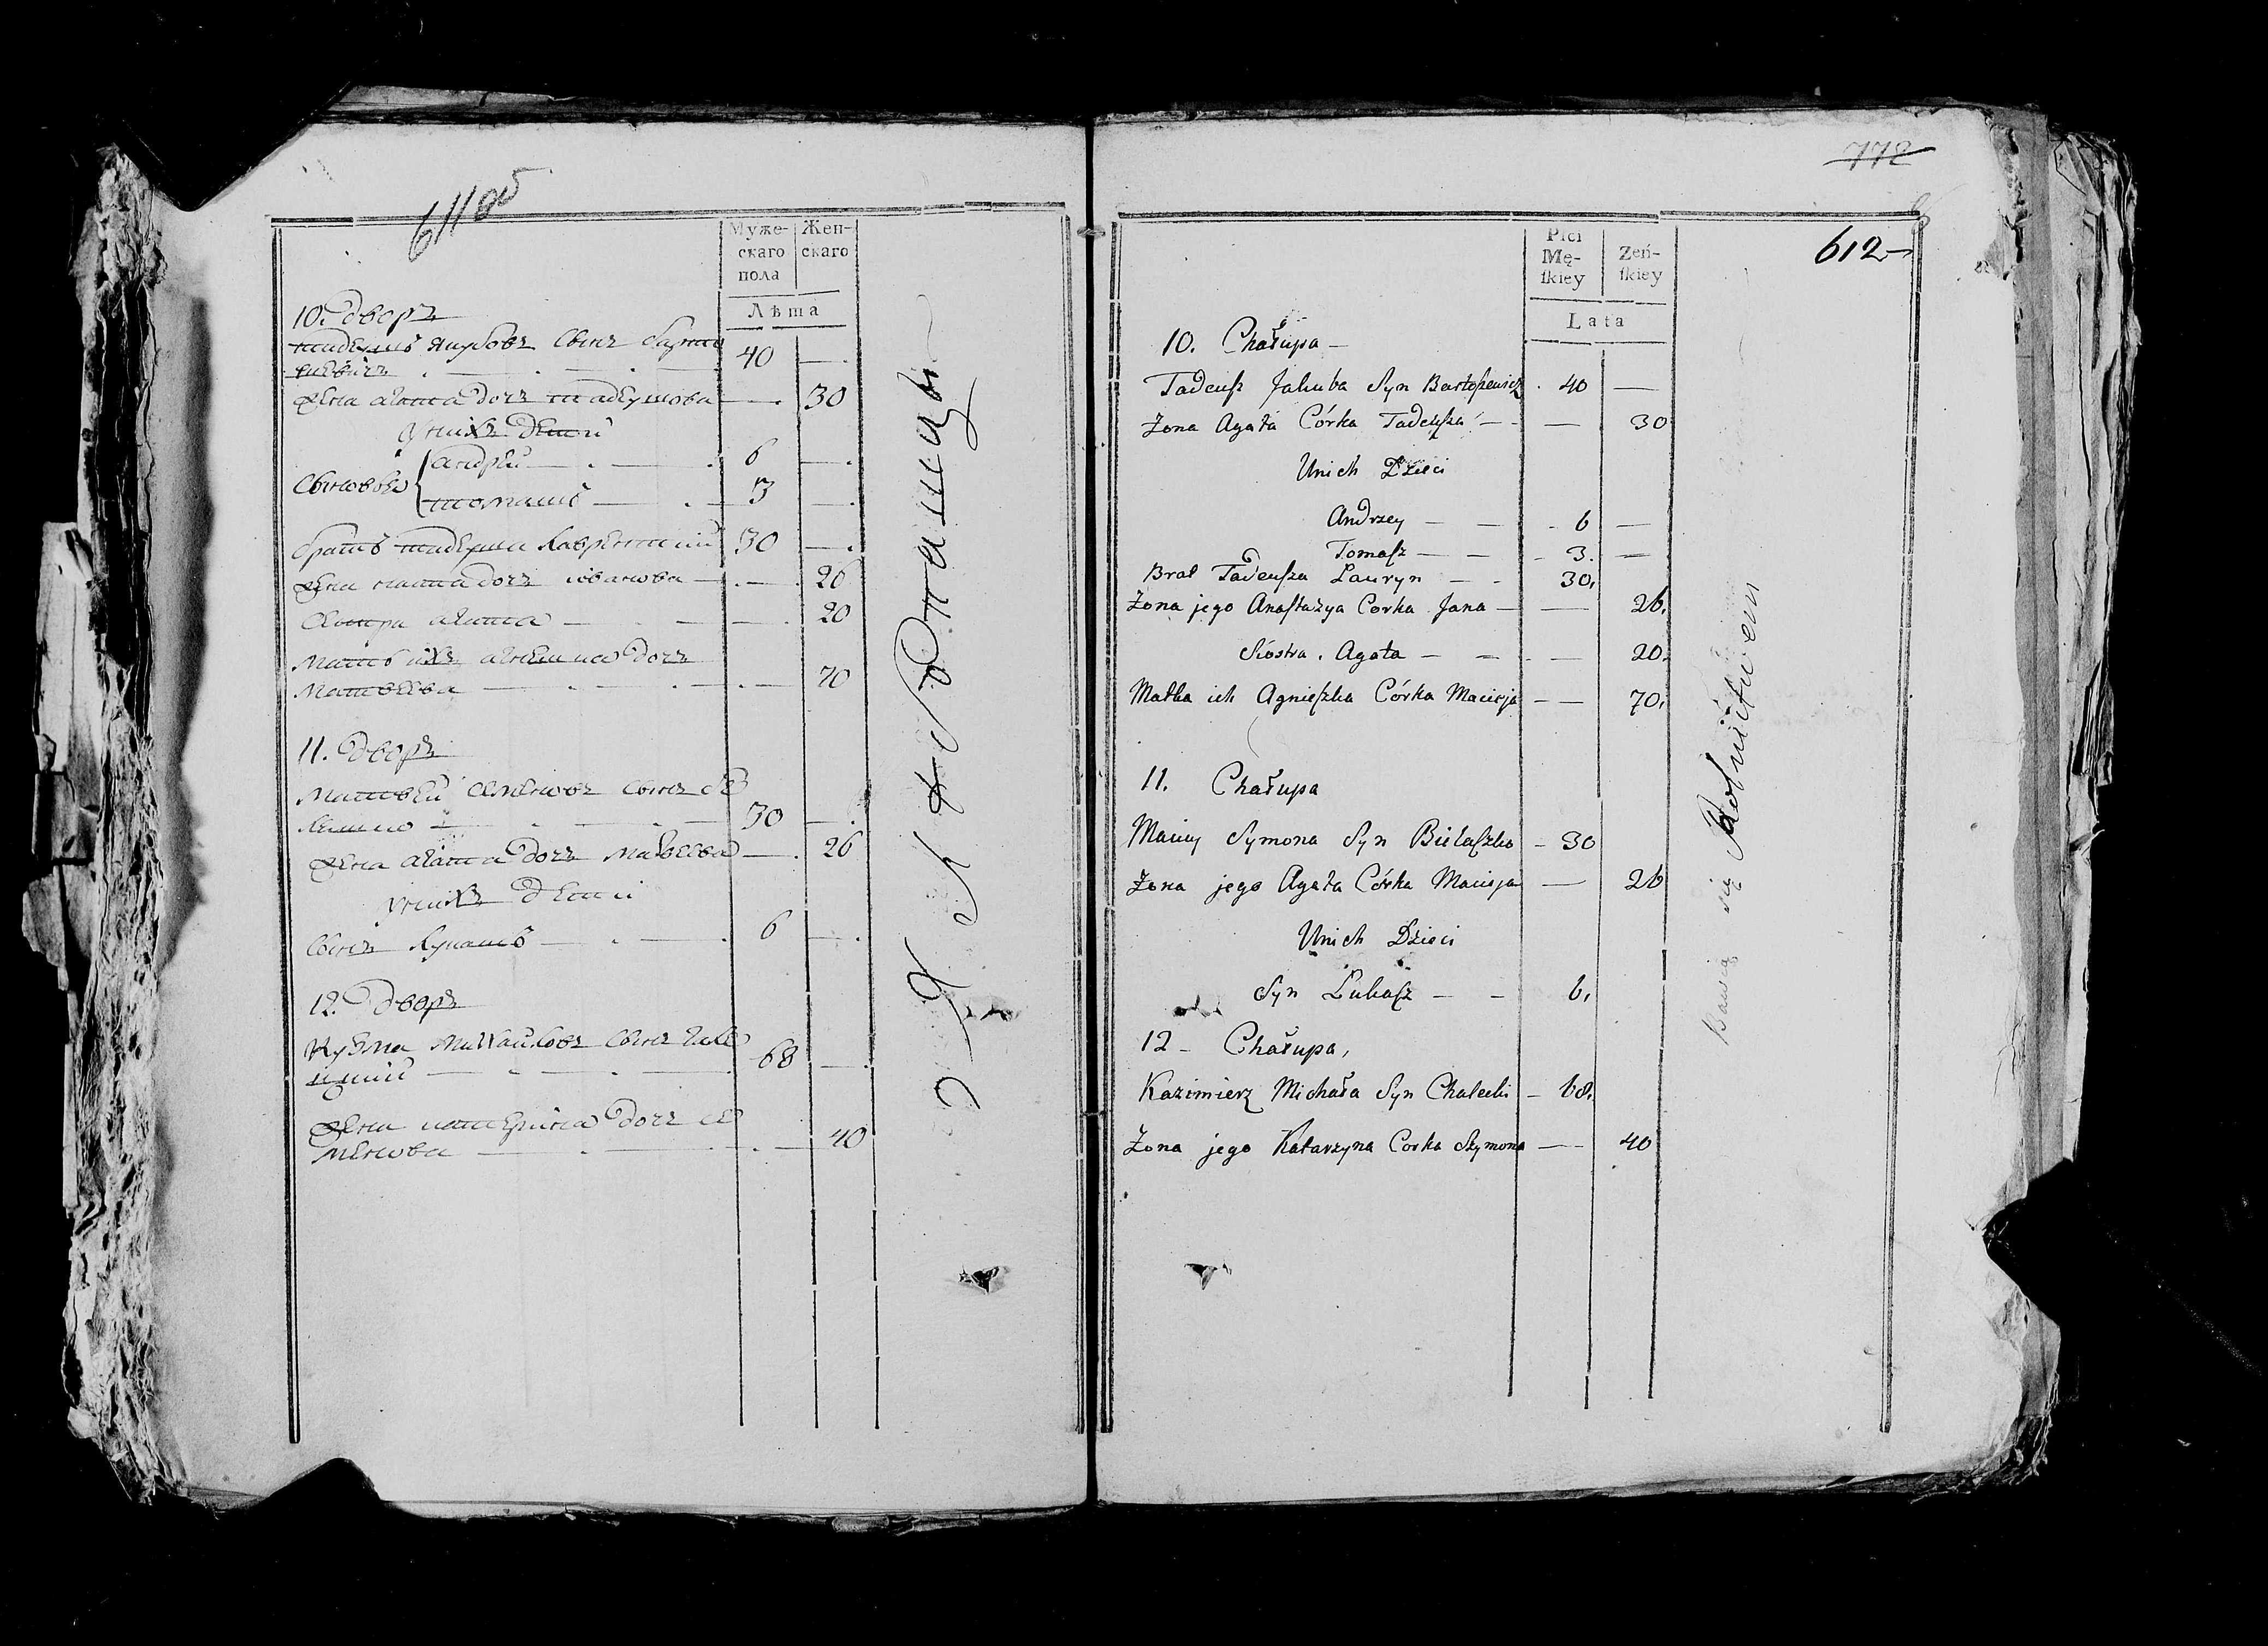 611 об
Муже-
скаго
пола
Жен-
скаго
Лѣта
10. дворъ
тадеушъ якубовъ сынъ барто
шевичъ 40 —
жена агата дочъ тадеушова — 30
у нихъ дети
сыновья андрей 6 —
томашъ 3 —
братъ тадеуша лаврентий 30 —
жена настадочъ иванова — 26
сестра агата — 20
мать ихъ агнешка дочъ
матвеева — 70
11. дворъ
матвей семеновъ сынъ
30 —
жена агата дочъ матвеева — 26
у нихъ дети
сынъ лукашъ 6 —
12. дворъ
михайловъ сынъ
68 —
жена катерина дочъ се
менова — 40
772
612
Płci
Mę-
ſkiey
Żeń-
ſkiey
Lata
10. Chałupa —
Tadeuſz Jakuba Syn Bartoſzewicz 40 —
Żona Agata Córka Tadeuſza — 30
Unich Dzieci
Andrzey — 6 —
Tomaſz — 3. —
Brat Tadeuſza Lauryn — 30,
Żona jego Anaſtazya Corka Jana — 26,
Siostra. Agata — 20,
Matka ich Agnieſzka Córka Macieja — 70,
11. Chałupa
Maciey Symona Syn Bielaſzko — 30
Żona jego Agata Córka Macieja — 26
Unich Dzieci
Syn Łukaſz — 6,
12 — Chałupa,
Kazimierz Michała Syn Chalecki — 68,
Żona jego Katarzyna Corka Szymona — 40
Bawią się Rolnictwem